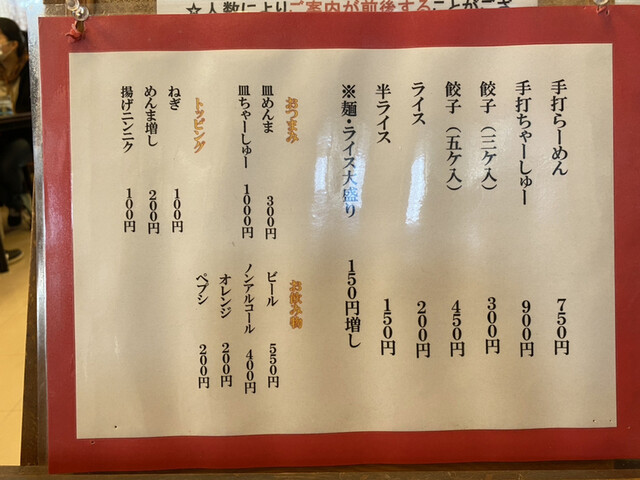 ☆人数によりご案内が前後することがござ
手打らーめん 750円
手打ちゃーしゅー 900円
餃子（三ケ入） 300円
餃子（五ケ入） 450円
ライス 200円
半ライス 150円
※麺・ライス大盛り 150円増し
おつまみ
皿めんま 300円
皿ちゃーしゅー 1000円
トッピング
ねぎ 100円
めんま増し 200円
揚げニンニク 100円
お飲み物
ビール 550円
ノンアルコール 400円
オレンジ 200円
ペプシ 200円